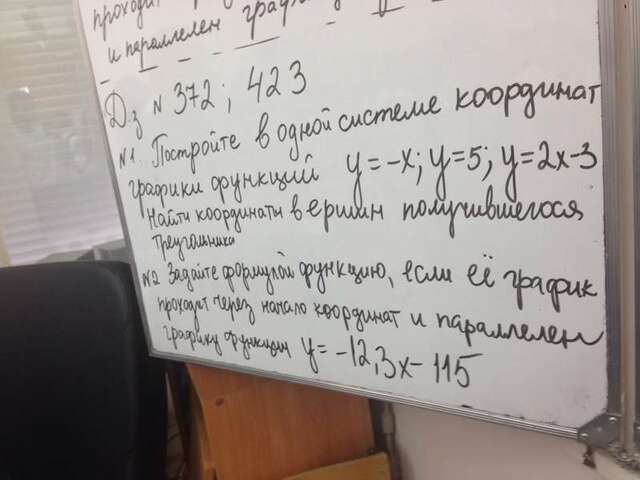 и параллелен
Д.з № 372; 423
№1. Постройте в одной системе координат
графики функций y=-x; y=5; y=2x-3
Найти координаты вершин получившегося
треугольника
№2 Задайте формулой функцию, если её график
проходит через начало координат и параллелен
графику функции y=-12,3x-115